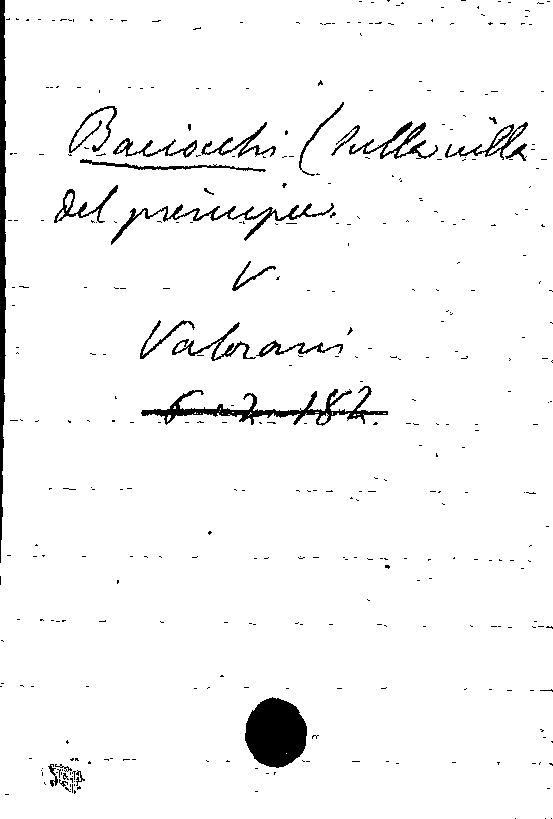 Baciocchi (sulla villa
del principe.
V.
Valorani
6-2-182.